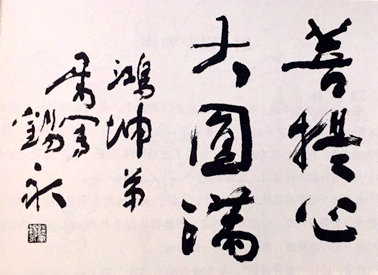 菩提心
大圓滿
鴻坤弟
錫永